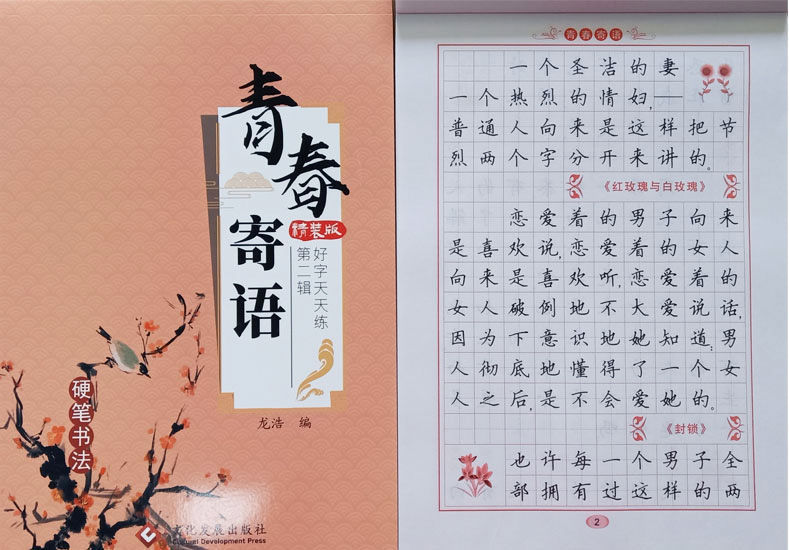 青春
寄语
精装版
好字天天练
第二辑
龙浩 编
硬笔书法
文化发展出版社
Cultural Development Press
青春寄语
一个圣洁的妻
一个热烈的情妇,——
普通人向来是这样把节
烈两个字分开来讲的。
《红玫瑰与白玫瑰》
恋爱着的男子向来
是喜欢说,恋爱着的女人
向来是喜欢听,恋爱着的
女人破例地不大爱说话,
因为下意识地她知道:男
人彻底地懂得了一个女
人之后,是不会爱她的。
《封锁》
也许每一个男子全
部拥有过这样的两
2